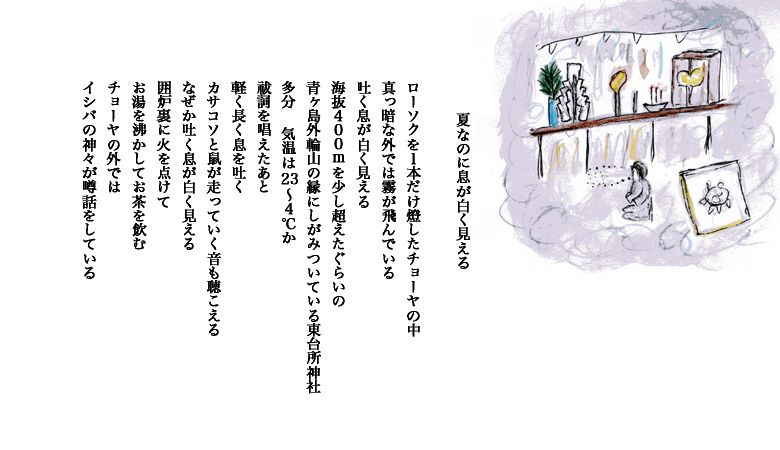 夏なのに息が白く見える
ローソクを1本だけ燈したチョーヤの中
真っ暗な外では霧が飛んでいる
吐く息が白く見える
海抜400mを少し超えたぐらいの
青ヶ島外輪山の縁にしがみついている東台所神社
多分　気温は23～4℃か
祓詞を唱えたあと
軽く長く息を吐く
カサコソと鼠が走っていく音も聴こえる
なぜか吐く息が白く見える
囲炉裏に火を点けて
お湯を沸かしてお茶を飲む
チョーヤの外では
イシバの神々が噂話をしている